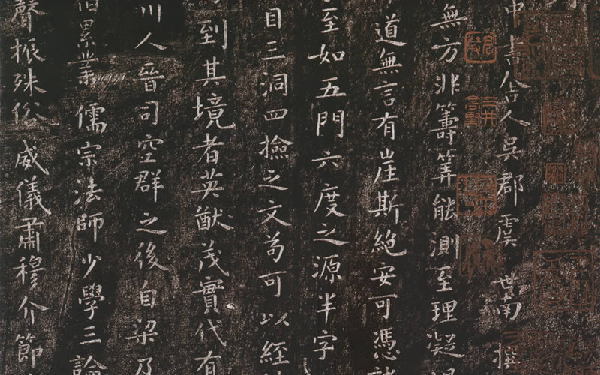 中書舍人吳郡虞世南撰
無方非籌筭能測至理凝
道無言有崖斯絕安可憑諸
至如五門六度之源半字
目三洞四撿之文苟可以經
到其境者英猷茂實代有
川人晉司空群之後自梁及
伯累業儒宗法師少學三論
聲振殊俗威儀肅穆介節